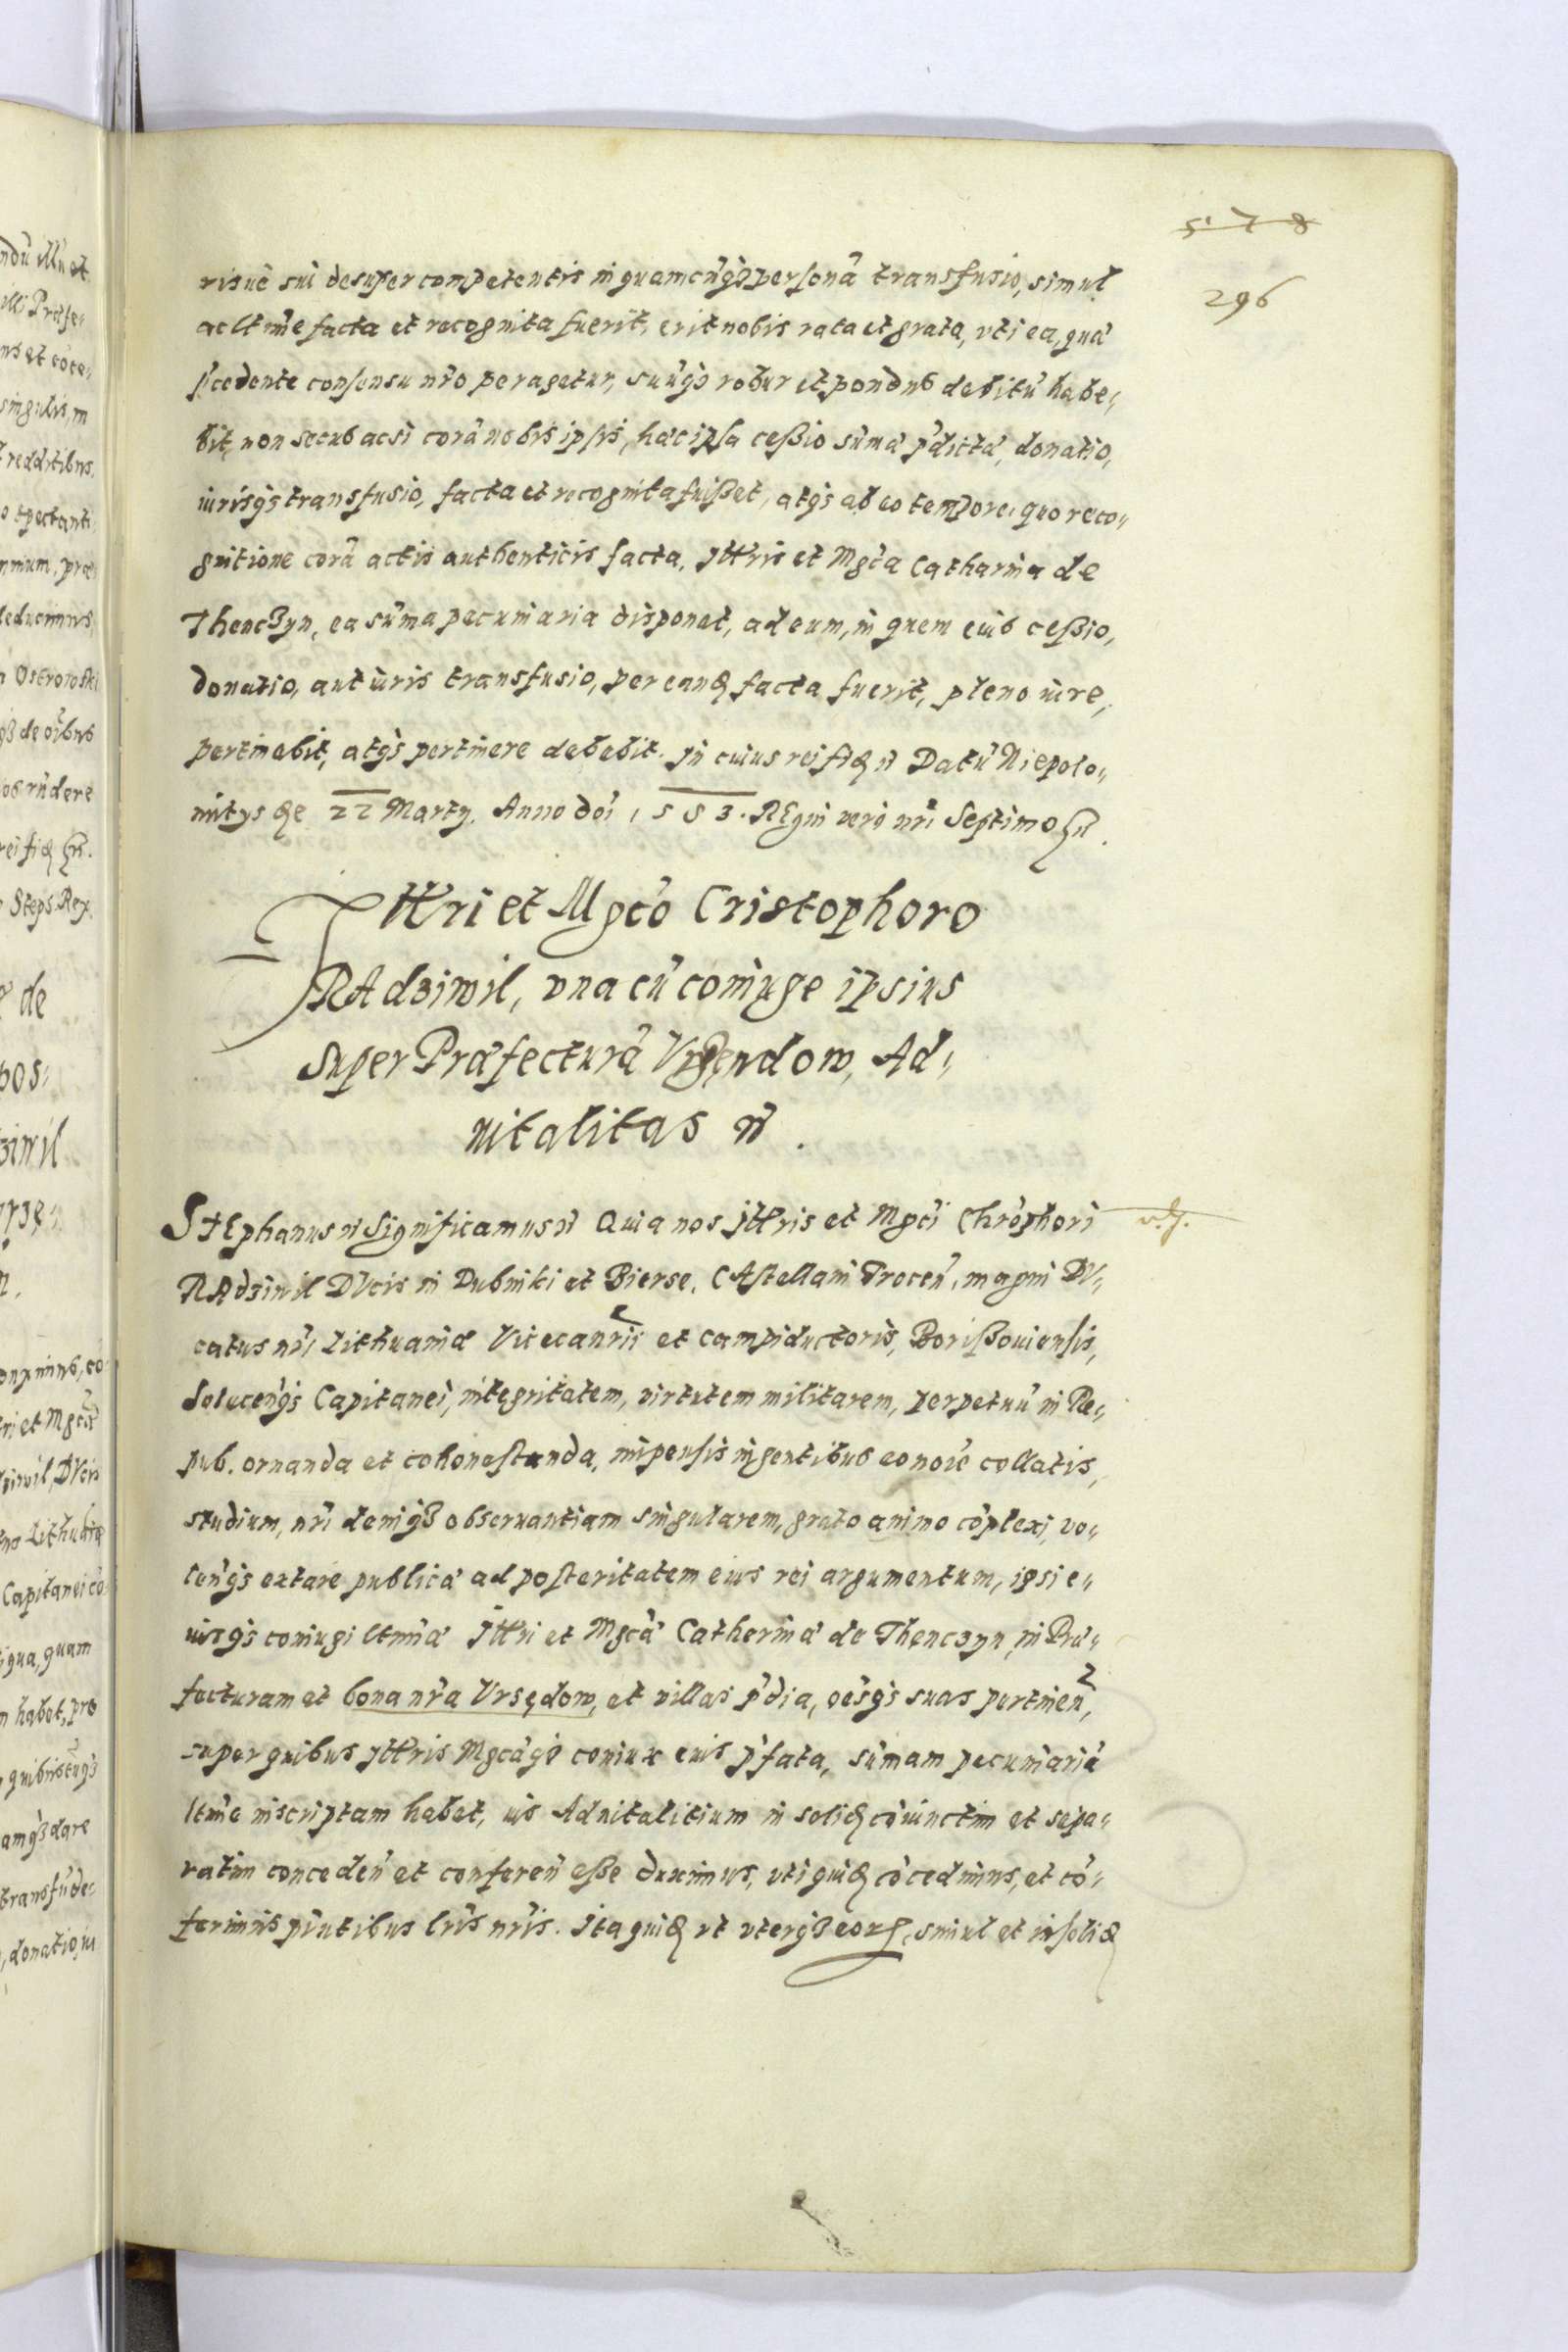 578
296
risue sui desuper competentis in quamcūqꝫ personā transfusio, simul
ac ltīme facta et recognita fuerit, erit nobis rata et grata, vti ea, quæ
p̄cedente consensu nr̄o peragetur, suūqꝫ robur et pondus debitū habe⸗
bit, non secus ac si corā nobis ipsis, hæc ipsa ceßio sūmæ p̄dictæ, donatio,
iurisqꝫ transfusio, facta et recognita fuißet, atqꝫ ab eo tempore, quo reco⸗
gnitione corā actis authenticis facta, Jllris et Mgca Catharina de
Thenczyn, ea sūma pecuniaria disponet, ad eum, in quem eius ceßio,
donatio, aut iuris transfusio, per eandē facta fuerit, pleno iure,
pertinebit, atqꝫ pertinere debebit. Jn cuius rei fidē ꝛc Datū Niepolo⸗
mitys die 22 Marty. Anno dōi 1583. REgni vero nr̄i Septimo ꝛc.
Jllri et Mgco Cristophoro
RAdziwil, vna cū coniuge ipsius
super Præfecturā Vrzendow, Ad⸗
uitalitas ꝛc.
STEphanus ꝛc Significamus ꝛc Quia nos Jllris et Mgci Chrōphori
RAdziwil DVcis in Dubinki et Bierse, CAstellani Trocen̄, magni DV⸗
catus nr̄i Lithuaniæ Vicecancrii et campiductoris, Borißouiensis,
Solecen̄qꝫ Capitanei, integritatem, virtutem militarem, perpetuū in Re⸗
pub. ornanda et cohonestanda, impensis ingentibus eo noīe collatis,
studium, nr̄i deniqꝫ obseruantiam singularem, grato animo cōplexi, vo⸗
len̄qꝫ extare publicæ ad posteritatem eius rei argumentum, ipsi e⸗
iusqꝫ coniugi ltīmæ Jllri et Mgcæ Catherinæ de Thenczyn, in Præ⸗
fecturam et bona nr̄a Vrsędow, et villas p̄dia, oēsqꝫ suas pertinen̄,
super quibus Jllris Mgcaqꝫ coniux eius p̄fata, sūmam pecuniariā
ltīme inscriptam habet, ius Aduitalitium in solidū cōiunctim et sepa⸗
ratim conceden̄ et conferen̄ eße duximus, vti quidē cōcedimus, et cō⸗
ferimus pn̄tibus lr̄is nr̄is. Jta quidē vt vterqꝫ eorū, simul et in solidū